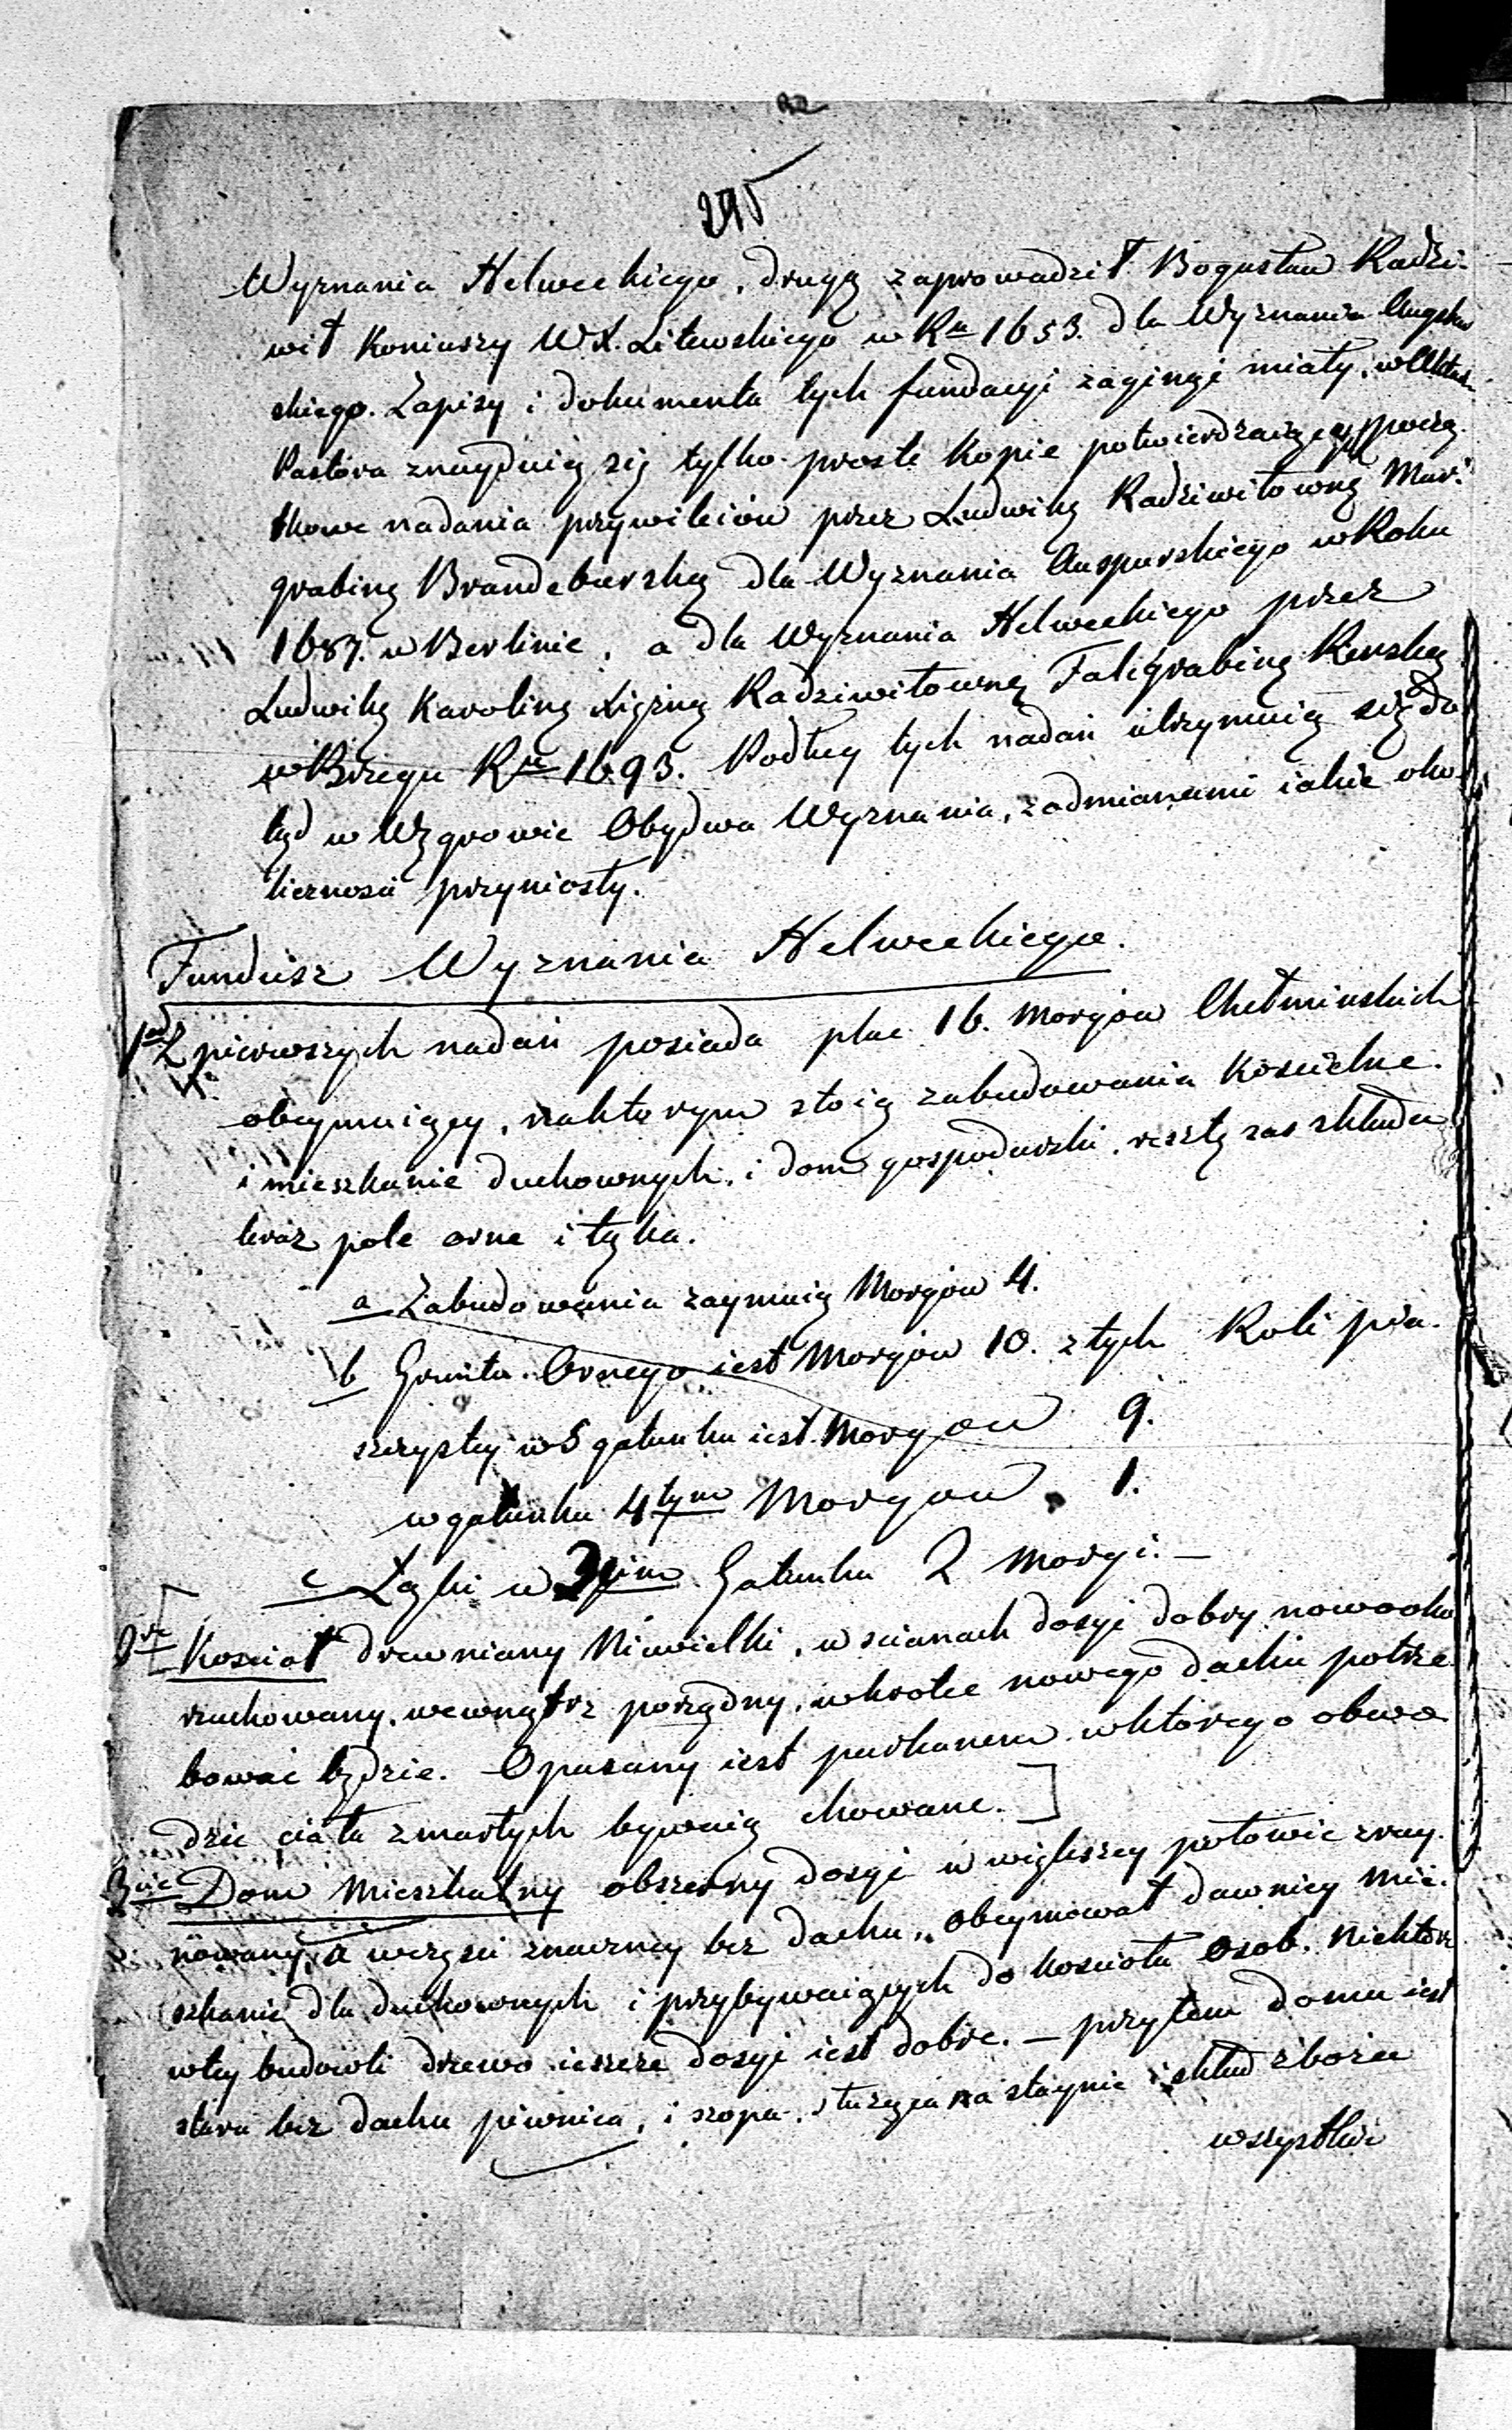 295
Wyznania Helweckiego, drugą zaprowadził Bogusław Radzi-
wił Koniuszy W.X. Litewskiego w Ru 1653. dla Wyznania Augsbur
skiego. Zapisy i dokumenta tych fundacyi zaginąć miały, w Aktach
Pastora znayduią się tylko proste Kopie potwierdzaiące począ
tkowe nadania przywileiów przez Ludwikę Radziwiłownę Mar-
grabinę Brandeburską dla Wyznania Auspurskiego w Roku
1687. w Berlinie, a dla Wyznania Helweckiego przez
Ludwikę Karolinę Xiężnę Radziwiłownę Falcgrabinę Renską
w Brzegu Ru 1693. Podług tych nadań utrzymuią się do
tąd w Węgrowie Obydwa Wyznania, z odmianami iakie oko-
liczności przyniosły.
Fundusz Wyznania Helweckiego.
1od Z pierwszych nadań posiada plac 16. Morgów Chełmińskich
obeymuiący, na którym stoią zabudowania Kościelne.
i mieszkanie duchownych, i dom gospodarski, resztę zas składa
teraz pole orne i łąka.
a Zabudowania zaymuią Morgów 4.
b Gruntu Ornego iest Morgów 10. z tych Roli pia-
szczystey w 5 gatunku iest Morgow 9.
w gatunku 4tym Morgow 1.
c Łąki w 3cim Gatunku 2 Morgi. —
2re Kościoł drewniany Niewielki, w scianach dosyć dobry nowo oko
rzuchowany, wewnątrz porządny, wkrotce nowego dachu potrze
bować będzie. Opasany iest parkanem w którego obwo
dzie ciała zmarłych bywaią chowane.
3cie Dom Mieszkalny obszerny dosyć w większey połowie zruy-
nowany, a w części znaczney bez dachu, obeymował dawniey mie-
szkanie dla duchownych i przybywaiących do kościoła osob. Niektóre
w tey budowli drzewo ieszcze dosyć iest dobre. — przy tem domu iest
stara bez dachu piwnica, i szopa, służąca na staynie i skład zboża
wszystkie